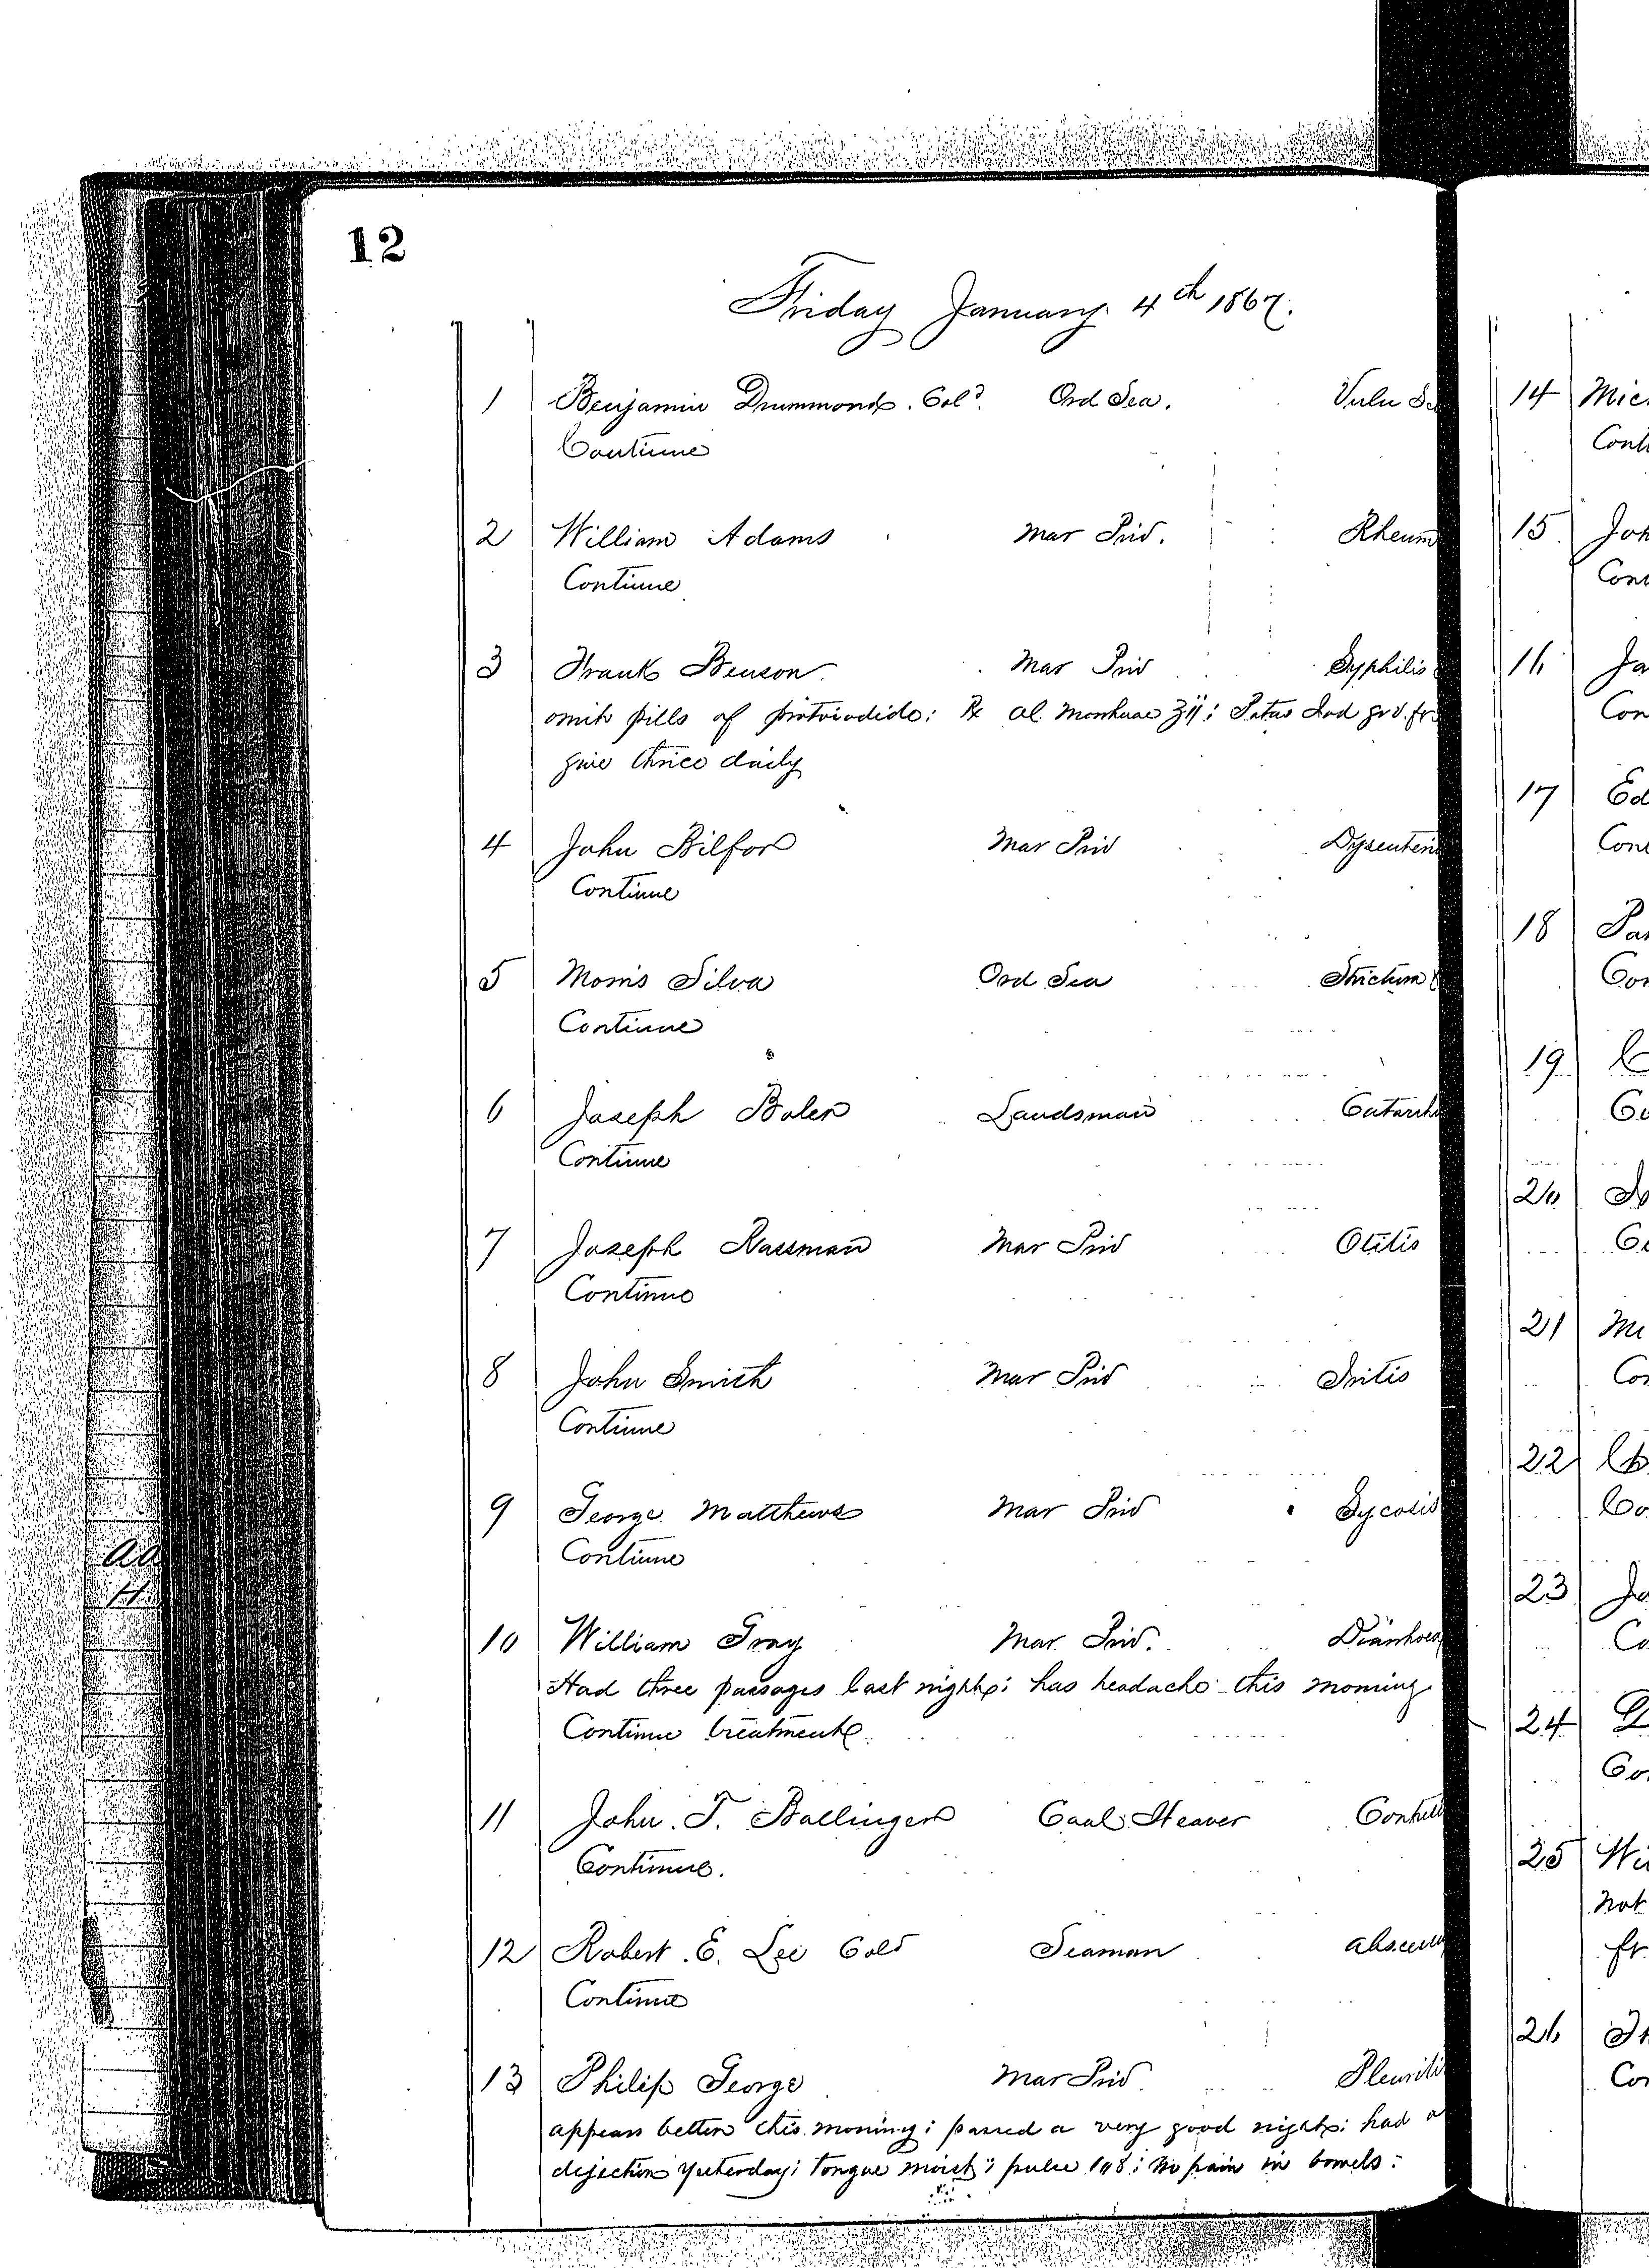 12
Friday January 4th 1867.
1 Benjamin Drummond. Col'd. Ord Sea. Vuln Sc
Continue
2 William Adams Mar Priv. Rheum
Continue
3 Frank Benson Mar Priv Syphilis
omit pills of protoiodide: ℞ Ol. Morrhuae ʒij: Potas Iod gr v. ft.
give thrice daily
4 John Bilfor Mar Priv Dysenteri
Continue
5 Morris Silva Ord Sea Strictura
Continue
6 Joseph Boler Landsman Catarrh
Continue
7 Joseph Rassman Mar Priv Otitis
Continue
8 John Smith Mar Priv Iritis
Continue
9 George Matthews Mar Priv Sycosis
Continue
10 William Gray Mar Priv. Diarrhoea
Had three passages last night: has headache this morning
Continue treatment.
11 John. T. Ballinger Coal Heaver Contus
Continue.
12 Robert. E. Lee Cold Seaman Abscess
Continue
13 Philip George Mar Priv Pleuriti
appears better this morning: passed a very good night: had a
dejection yesterday: tongue moist: pulse 108: no pain in bowels:
14 Mic
Cont
15 Joh
Con
16 Ja
Con
17 Ed
Con
18 Pa
Con
19 C
Co
20
Co
21 Mi
Con
22
Co
23 Jo
Co
24
Co
25 Wi
not
ft.
26
Con